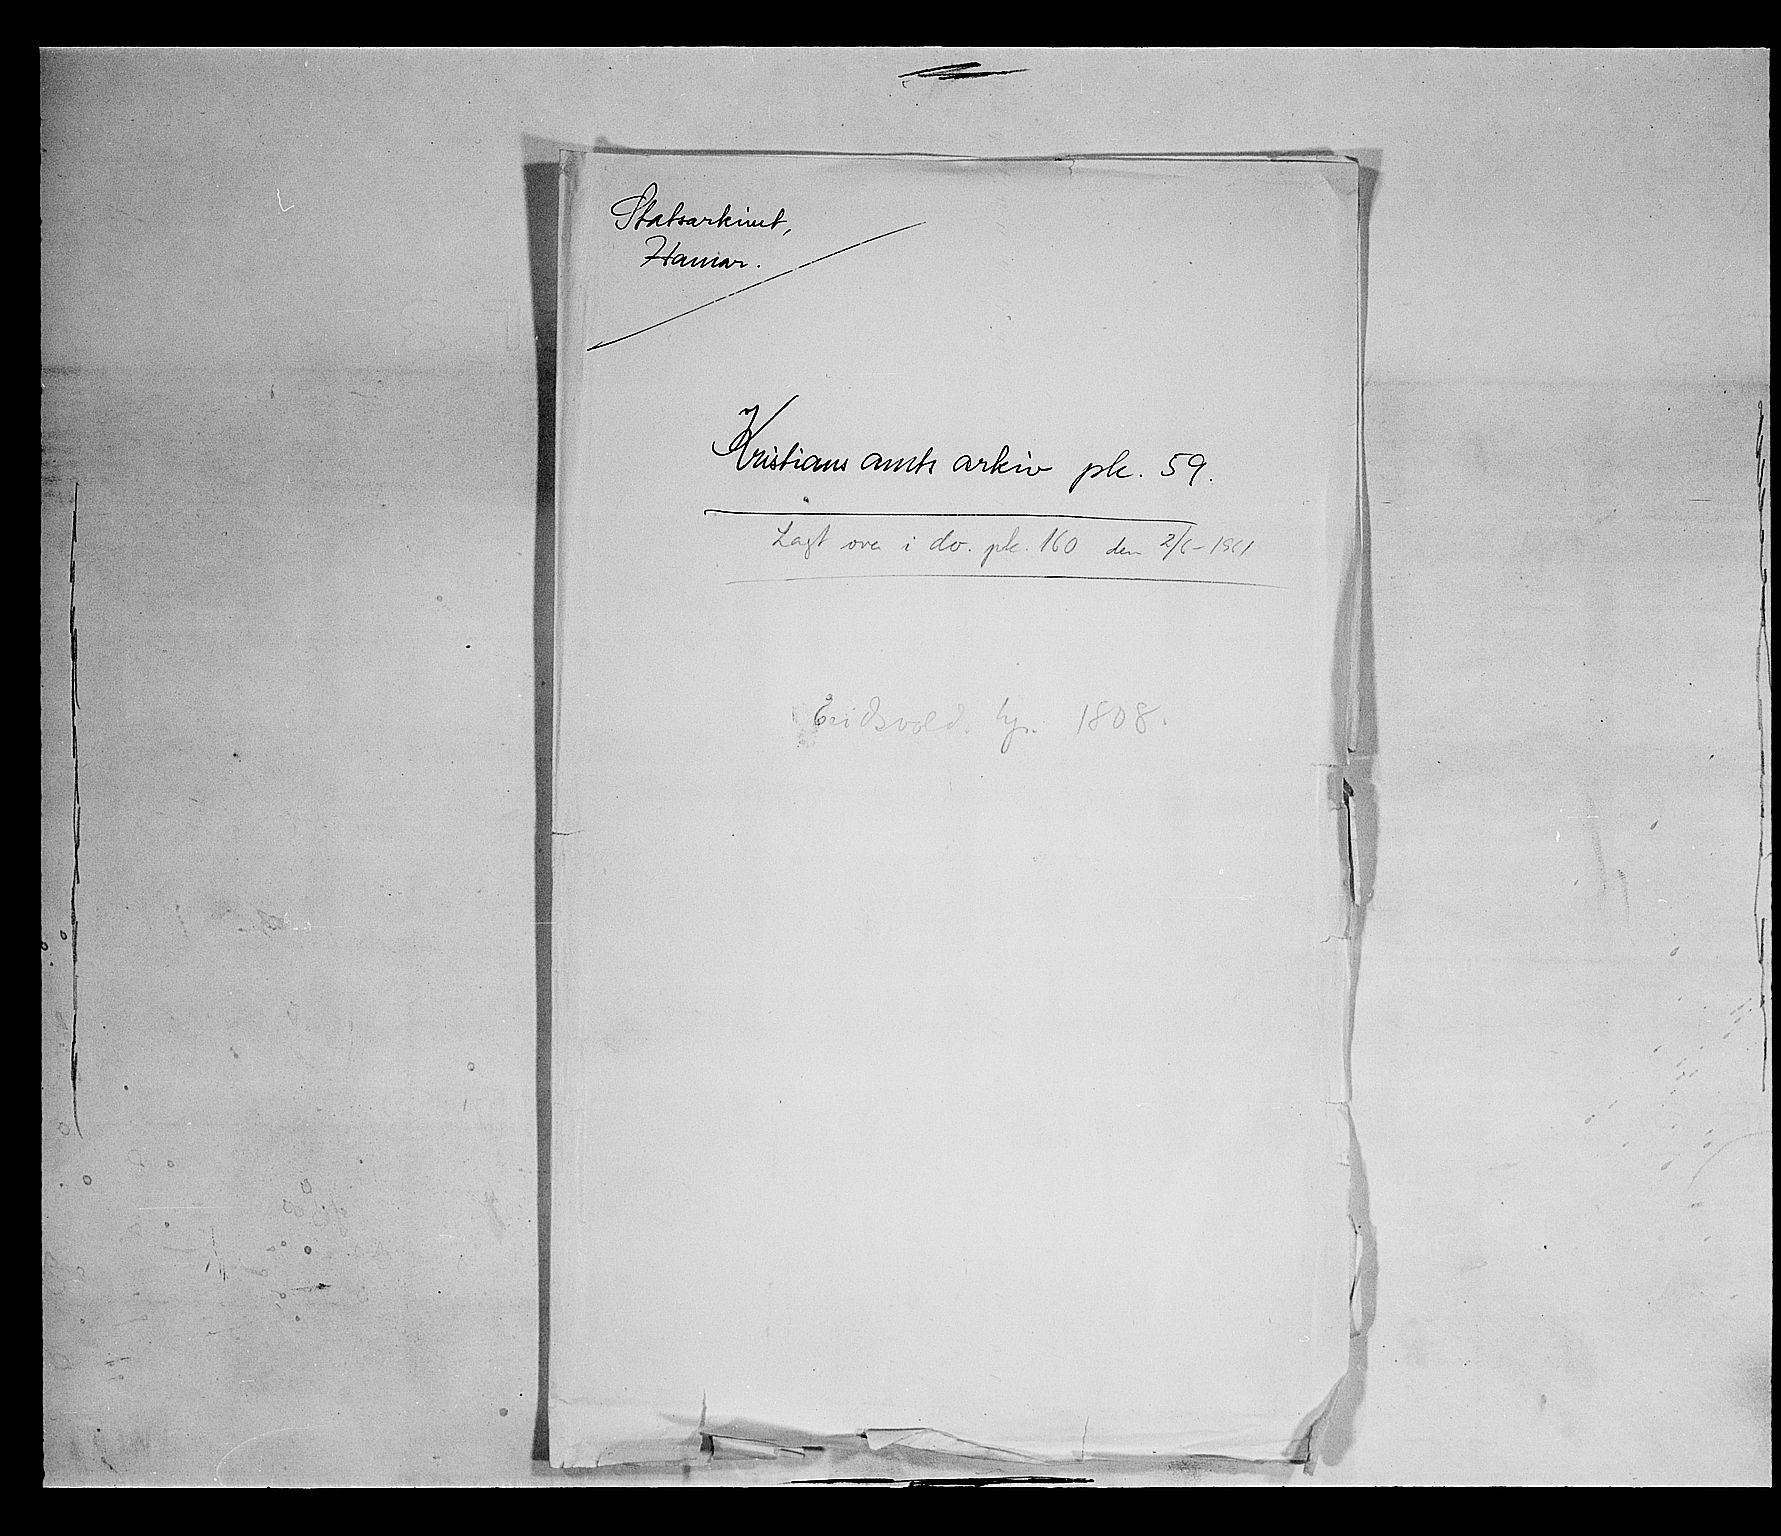 Statsarkivet,
Hamar.
Kristians amts arkiv pk. 59.
Lagt over i do. pk. 160 den 2/6-1961
Eidsvold 1808.